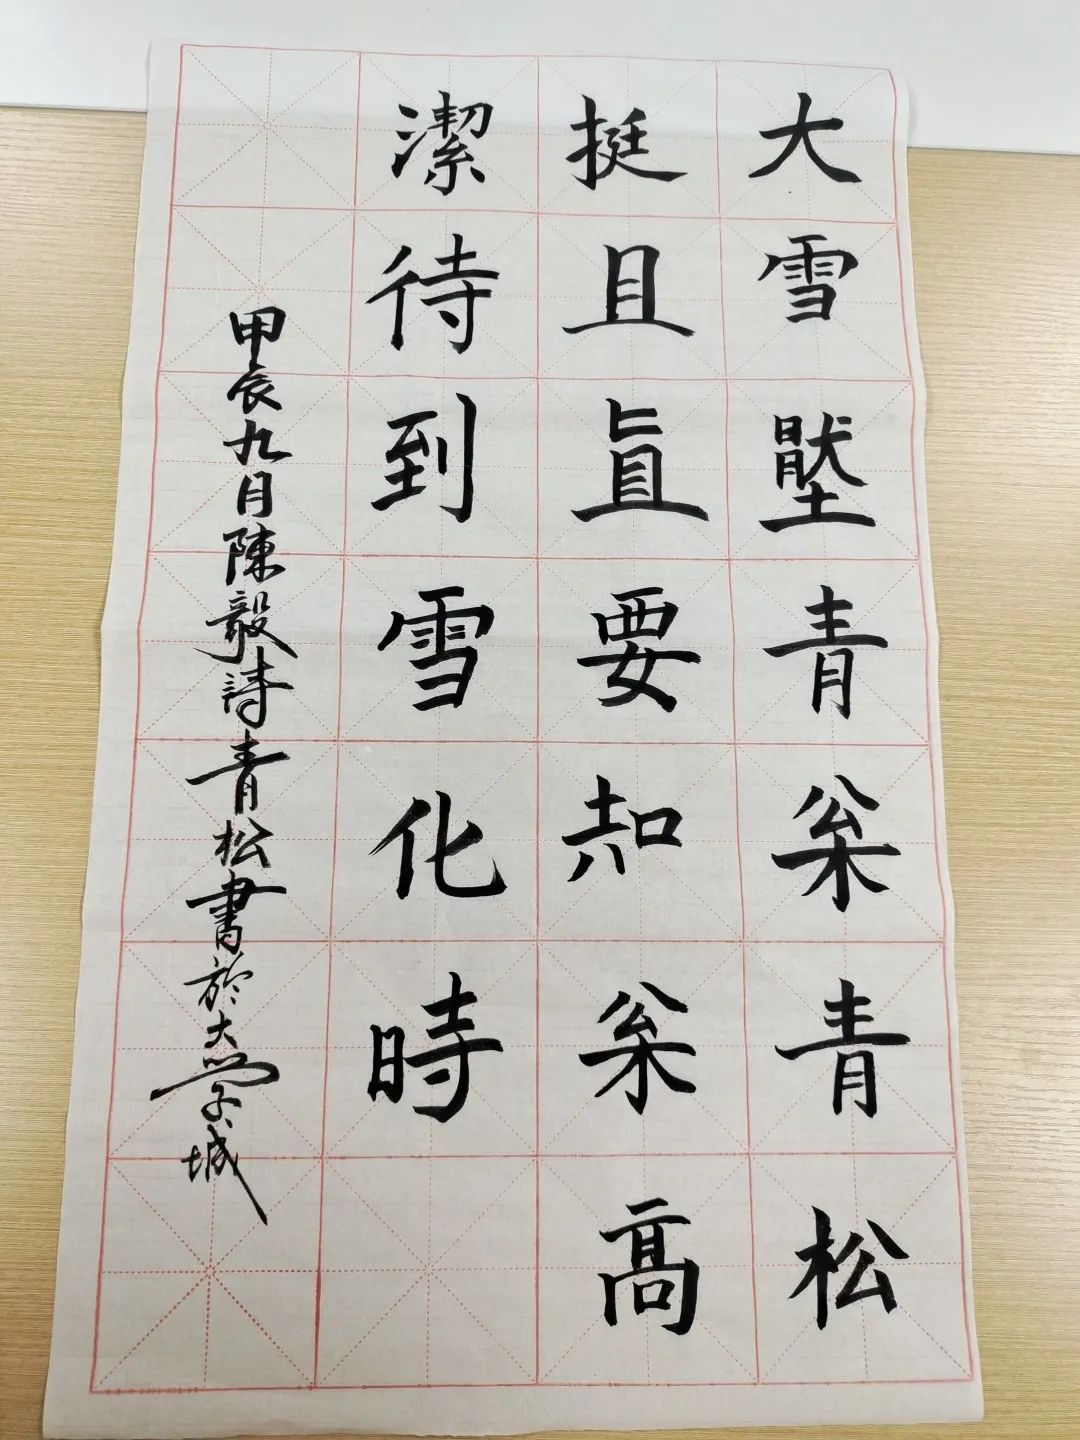 大雪壓青枀青松
挺且直要知枀高
潔待到雪化時
甲辰九月陳毅詩青松書於大學城